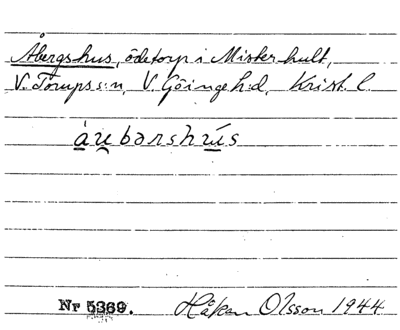 Åbergshus, ödetorp i Misterhult,
V. Torups s:n, V. Göinge h:d, Krist. l.
áu̯bərshu̍s
Nr 5369. Håkan Olsson 1944